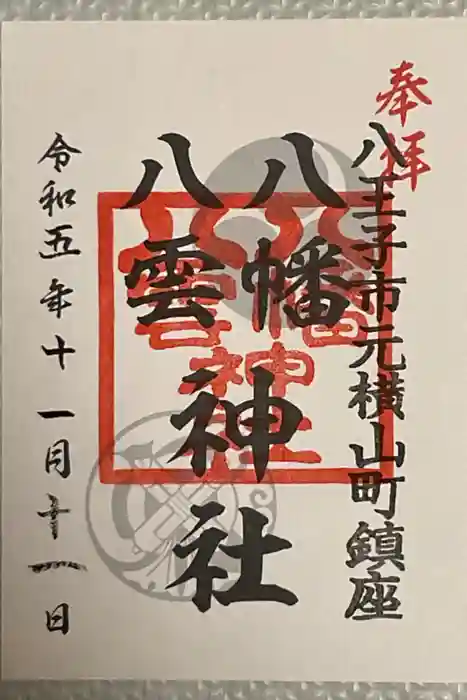 奉拝
八王子市元横山町鎮座
八幡
八雲
神社
令和五年十一月十一日